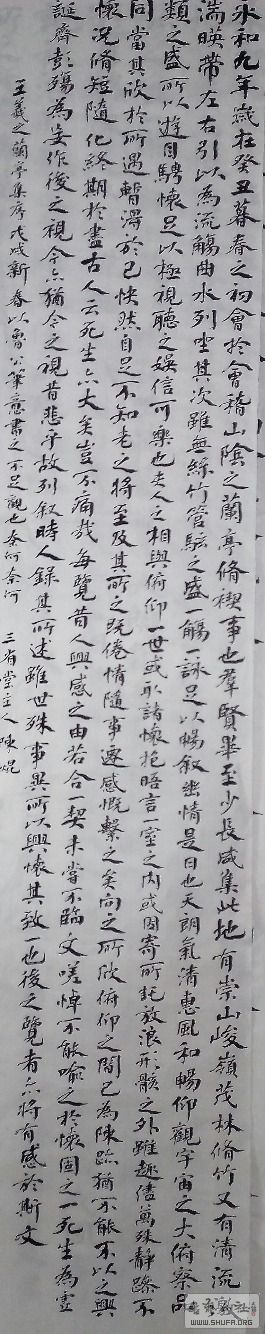 永和九年歲在癸丑暮春之初會於會稽山陰之蘭亭脩禊事也羣賢畢至少長咸集此地有崇山峻嶺茂林脩竹又有清流
湍暎帶左右引以為流觴曲水列坐其次雖無絲竹管絃之盛一觴一詠足以暢叙幽情是日也天朗氣清惠風和暢仰觀宇宙之大俯察品
類之盛所以遊目騁懷足以極視聽之娛信可樂也夫人之相與俯仰一世或取諸懷抱晤言一室之內或因寄所託放浪形骸之外雖趣舍萬殊靜躁不
同當其欣於所遇暫得於己快然自足不知老之將至及其所之既倦情隨事遷感慨繫之矣向之所欣俯仰之間已為陳跡猶不能不以之興
懷況脩短隨化終期於盡古人云死生亦大矣豈不痛哉每覽昔人興感之由若合一契未嘗不臨文嗟悼不能喻之於懷固知一死生為虛
誕齊彭殤為妄作後之視今亦猶今之視昔悲乎故列叙時人錄其所述雖世殊事異所以興懷其致一也後之覽者亦將有感於斯文
王羲之蘭亭集序戊戌新春以魯公筆意書之不足觀也奈何奈何 三省堂主人陳焜
WWW.SHUFA.ORG